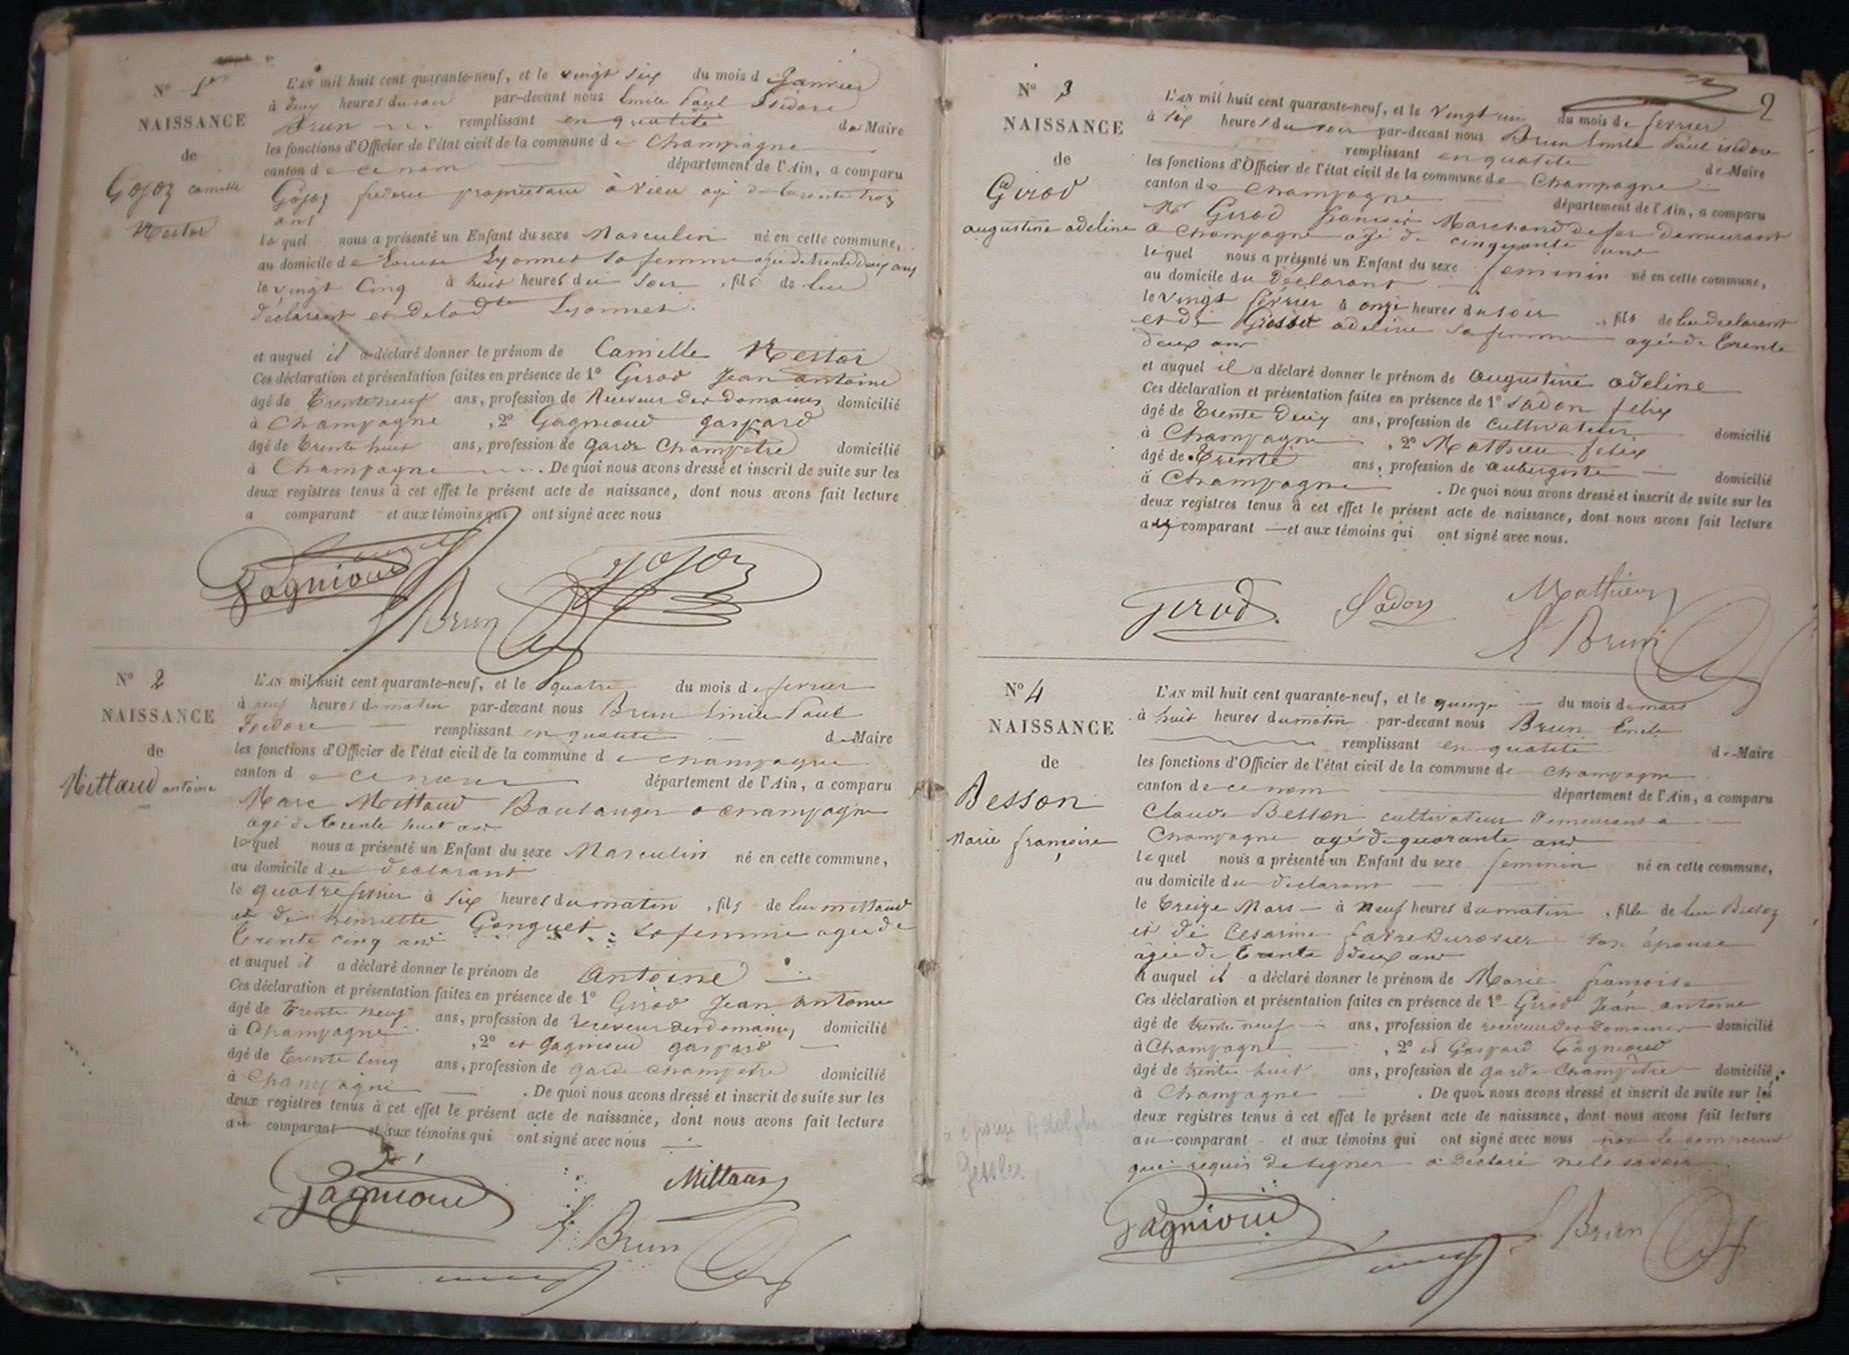 N° 1er
NAISSANCE
de
Gojoz camille
Nestor
L'AN mil huit cent quarante-neuf, et le vingt six du mois d Janvier
à deux heures du soir par-devant nous Emile Paul Isidore
Brun remplissant en qualité de Maire
les fonctions d'Officier de l'état civil de la commune de Champagne
canton de ce nom département de l'Ain, a comparu
Gojoz frederic propriétaire à Vieu agé de trente trois
ans
lequel nous a présenté un Enfant du sexe Masculin né en cette commune,
au domicile de Louise Lyonnet sa femme agée de trente deux ans
le vingt Cinq à huit heures du soir, fils de lui
déclarant et de lad.te Lyonnet.
et auquel il a déclaré donner le prénom de Camille Nestor
Ces déclaration et présentation faites en présence de 1° Girod Jean antoine
âgé de trente neuf ans, profession de Receveur des domaines domicilié
à Champagne, 2° Gagnioud gaspard
âgé de trente huit ans, profession de garde Champêtre domicilié
à Champagne. De quoi nous avons dressé et inscrit de suite sur les
deux registres tenus à cet effet le présent acte de naissance, dont nous avons fait lecture
a comparant et aux témoins qui ont signé avec nous
Gagnioud gojoz
E Brun
N° 2
NAISSANCE
de
Mittaud antoine
L'AN mil huit cent quarante-neuf, et le quatre du mois de fevrier
à neuf heures du matin par-devant nous Brun Emile Paul
Isidore remplissant en qualité de Maire
les fonctions d'Officier de l'état civil de la commune de champagne
canton de ce nom département de l'Ain, a comparu
Marc Mittaud Boulanger a champagne
agé de trente huit ans
lequel nous a présenté un Enfant du sexe Masculin né en cette commune,
au domicile du déclarant
le quatre fevrier à six heures du matin, fils de lui mittaud
et de henriette Gonguet sa femme agée de
trente cinq ans
et auquel il a déclaré donner le prénom de Antoine
Ces déclaration et présentation faites en présence de 1° Girod Jean antoine
âgé de trente neuf ans, profession de receveur des domaines domicilié
à Champagne, 2° et Gagnioud gaspard
âgé de trente cinq ans, profession de garde champêtre domicilié
à Champagne. De quoi nous avons dressé et inscrit de suite sur les
deux registres tenus à cet effet le présent acte de naissance, dont nous avons fait lecture
au comparant et aux témoins qui ont signé avec nous
Gagnioud Mittaud
E Brun
2
N° 3
NAISSANCE
de
Girod
augustine adeline
L'AN mil huit cent quarante-neuf, et le vingt un du mois de fevrier
à six heures du soir par-devant nous Brun Emile Paul isidore
remplissant en qualité de Maire
les fonctions d'Officier de l'état civil de la commune de Champagne
canton de Champagne département de l'Ain, a comparu
Mr Girod françois Marchand de fer demeurant
a Champagne agé de cinquante ans
lequel nous a présenté un Enfant du sexe feminin né en cette commune,
au domicile du Déclarant
le vingt février à onze heures du soir, fils de lui declarant
et de adeline sa femme agée de trente
deux ans
et auquel il a déclaré donner le prénom de augustine adeline
Ces déclaration et présentation faites en présence de 1° Sadon felix
âgé de trente deux ans, profession de cultivateur domicilié
à Champagne, 2° Mathieu felix
âgé de trente ans, profession de aubergiste domicilié
à Champagne. De quoi nous avons dressé et inscrit de suite sur les
deux registres tenus à cet effet le présent acte de naissance, dont nous avons fait lecture
aux comparant et aux témoins qui ont signé avec nous.
Girod Sadon Mathieu
E Brun
N° 4
NAISSANCE
de
Besson
Marie françoise
L'AN mil huit cent quarante-neuf, et le quinze du mois de mars
à huit heures du matin par-devant nous Brun Emile
remplissant en qualité de Maire
les fonctions d'Officier de l'état civil de la commune de Champagne
canton de ce nom département de l'Ain, a comparu
Claude Besson cultivateur demeurant à
Champagne agé de quarante ans
lequel nous a présenté un Enfant du sexe feminin né en cette commune,
au domicile du declarant
le treize Mars à Neuf heures du matin, fille de lui Besson
et de Cesarine son épouse
agée de trente deux ans
et auquel il a déclaré donner le prénom de Marie francoise
Ces déclaration et présentation faites en présence de 1° Girod Jean antoine
âgé de trente neuf ans, profession de receveur des domaines domicilié
à Champagne, 2° et Gaspard Gagnioud
âgé de trente huit ans, profession de garde Champêtre domicilié
à Champagne. De quoi nous avons dressé et inscrit de suite sur les
deux registres tenus à cet effet le présent acte de naissance, dont nous avons fait lecture
au comparant et aux témoins qui ont signé avec nous non le comparant
qui requis de signer a déclaré ne le savoir
a épousé Adolphe
Gagnioud E Brun